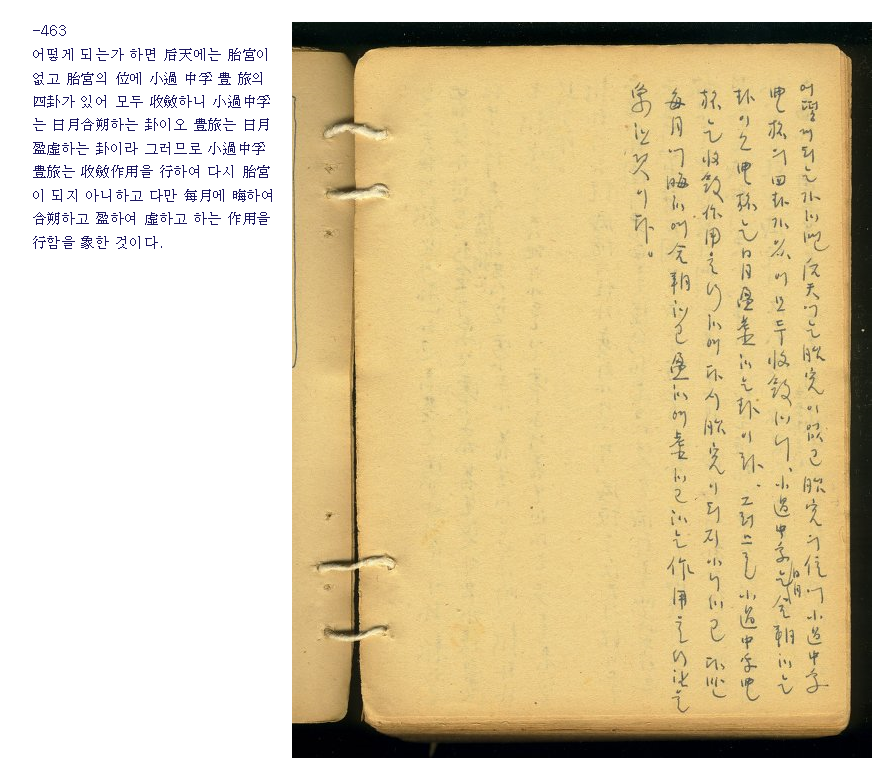 -463
어떻게 되는가 하면 后天에는 胎宮이
없고 胎宮의 位에 小過 中孚 豊 旅의
四卦가 있어 모두 收斂하니 小過中孚
는 日月合朔하는 卦이오 豊旅는 日月
盈虛하는 卦이라 그러므로 小過中孚
豊旅는 收斂作用을 行하여 다시 胎宮
이 되지 아니하고 다만 每月에 晦하여
合朔하고 盈하여 虛하고 하는 作用을
行함을 象한 것이다.
어떻게 되는가 하면 后天에는 胎宮이 없고 胎宮의 位에 小過中孚
豊旅의 四卦가 있어 모두 收斂하니, 小過中孚는 日月合朔하는
卦이오 豊旅는 日月盈虛하는 卦이라. 그러므로 小過中孚豊
旅는 收斂作用을 行하여 다시 胎宮이 되지 아니하고 다만
每月에 晦하여 合朔하고 盈하여 虛하고 하는 作用을 行함을
象한 것이다.